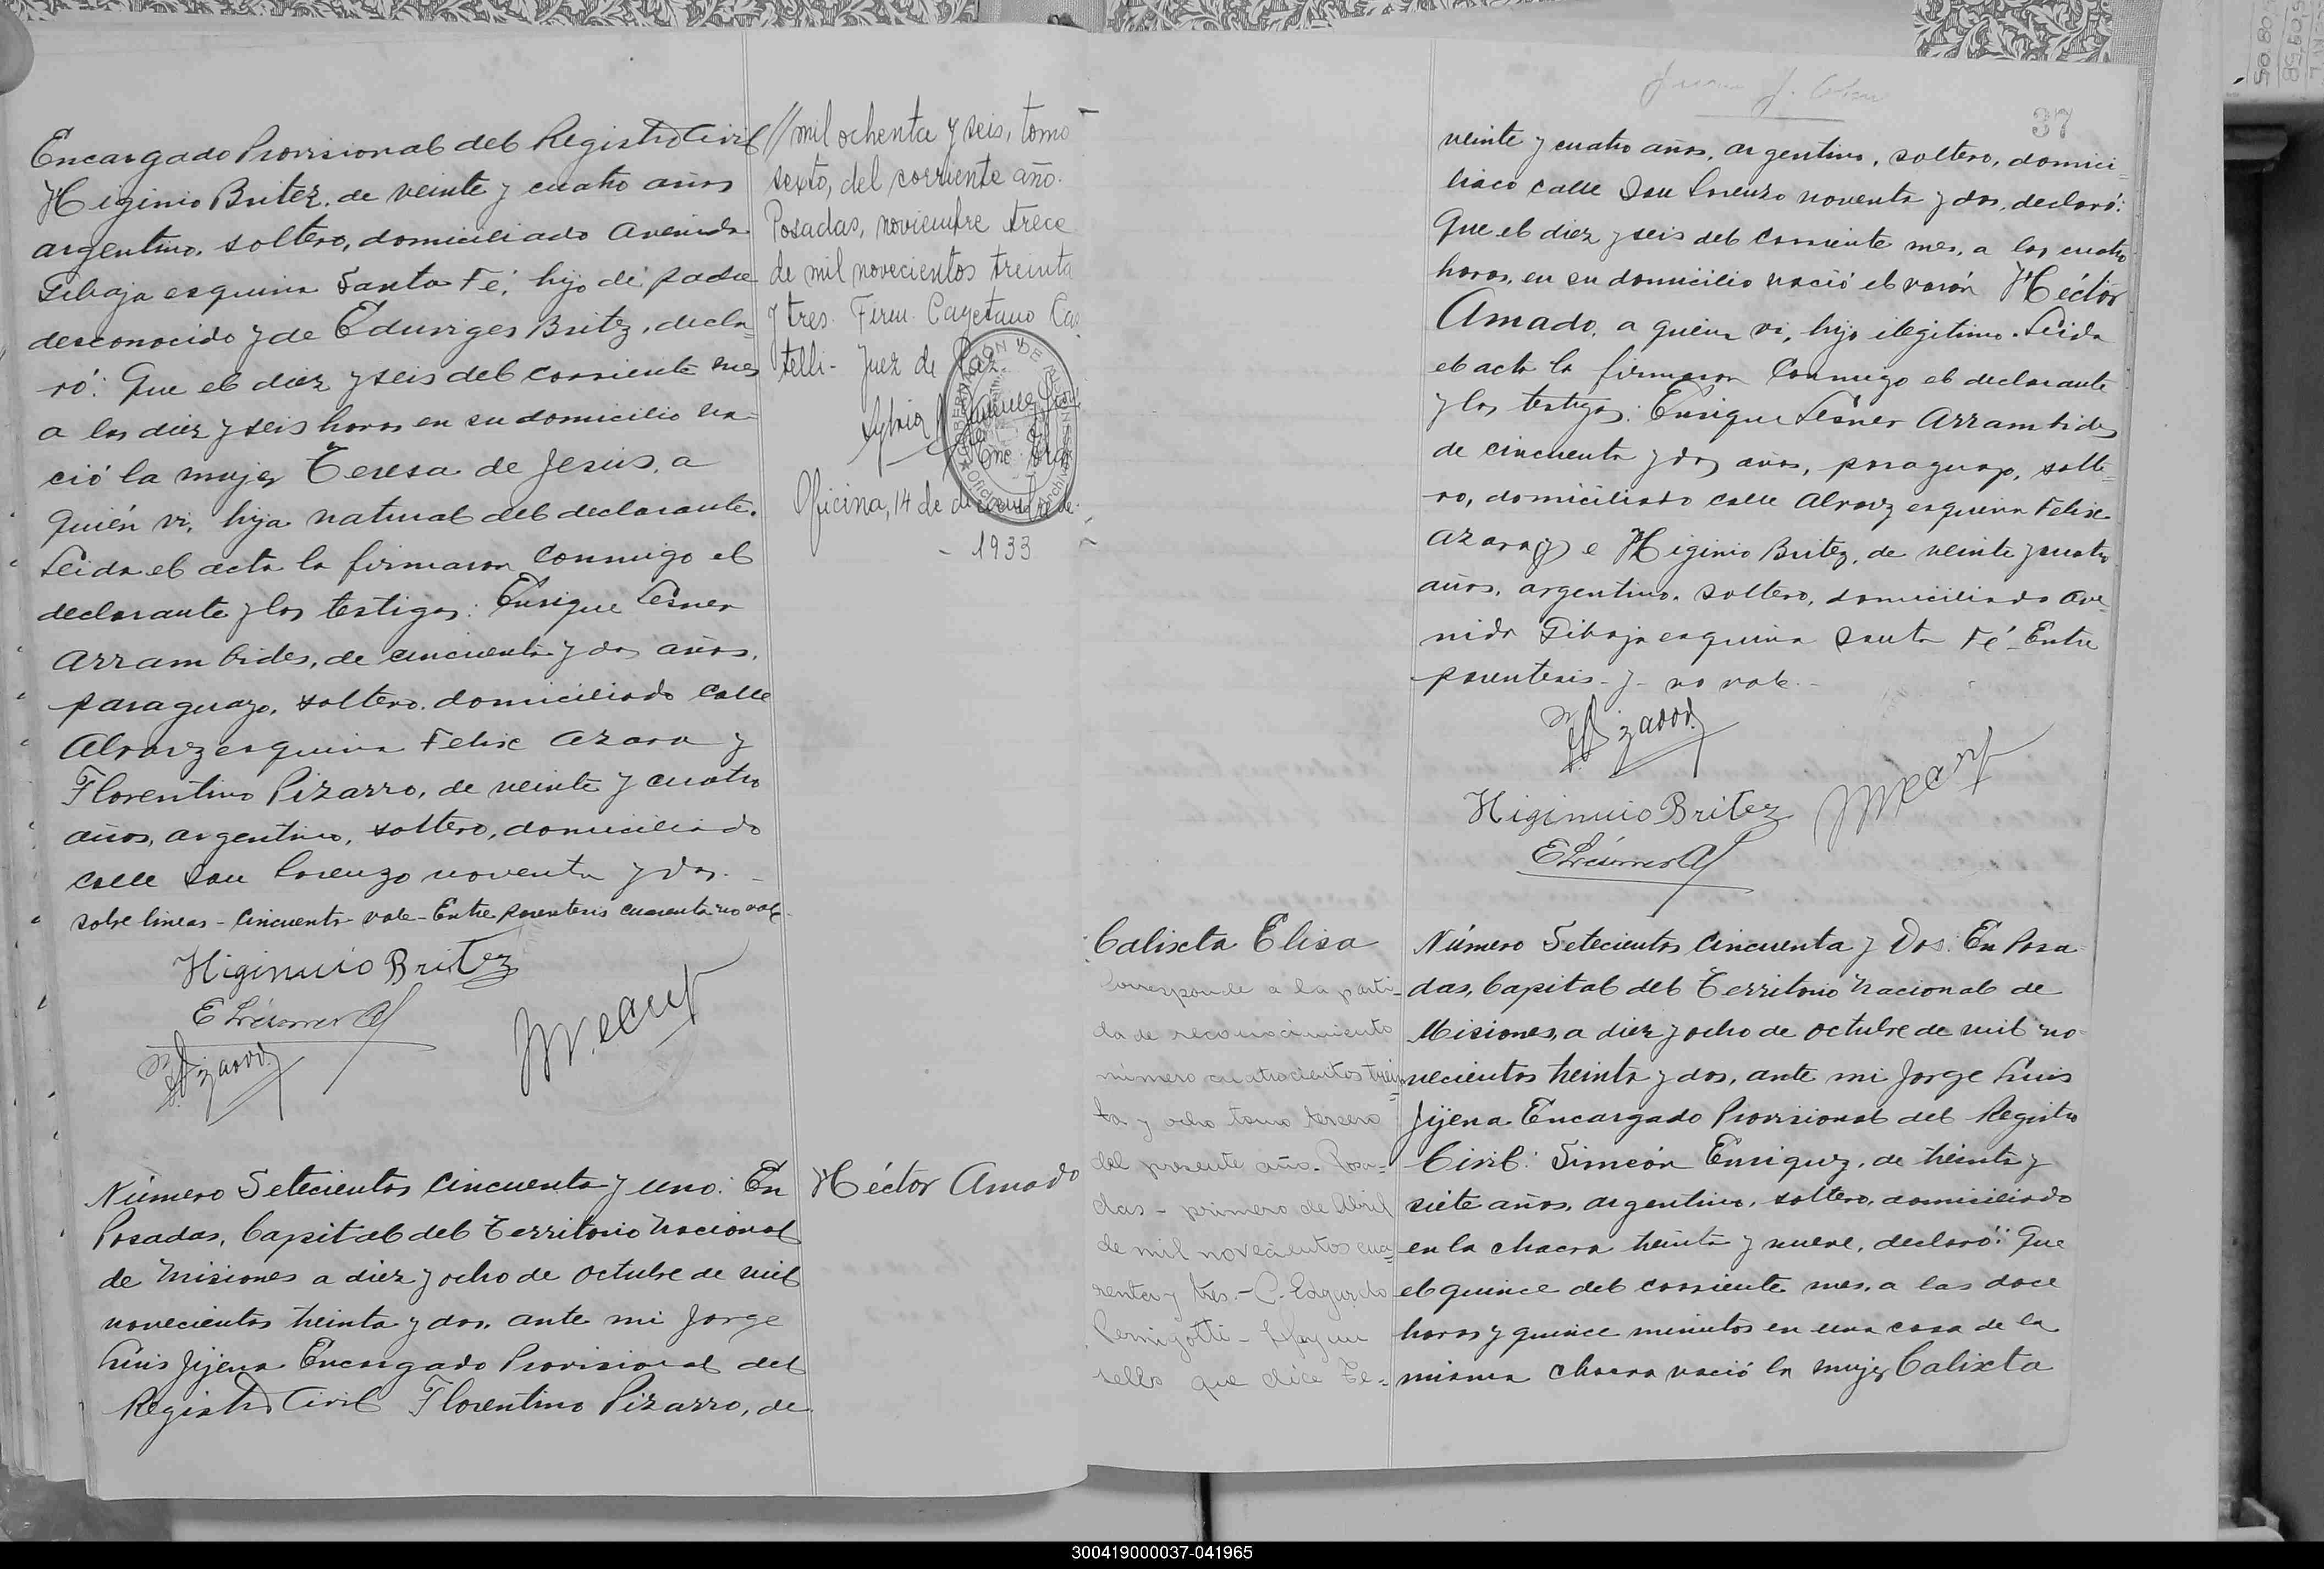 Encargado Provisional del Registro Civil
Higinio Britez, de veinte y cuatro años
argentino, soltero, domiciliado Avenida
Tibaja esquina Santa Fé, hijo de padre
desconocido y de Eduviges Britez, decla-
ró: Que el diez y seis del corriente mes
a las diez y seis horas en su domicilio na-
ció la mujer Teresa de Jesús, a
quién vi, hija natural del declarante.
Leida el acta la firmaron conmigo el
declarante y los testigos: Enrique Lesner
Arrambides, de cincuenta y dos años,
paraguayo, soltero, domiciliado calle
Alvarez esquina Felix Azara y
Florentino Pizarro, de veinte y cuatro
años, argentino, soltero, domiciliado
calle San Lorenzo noventa y dos. -
sobre lineas - cincuenta vale - Entre parentesis cuarenta no vale
Higinuio Britez
Número Setecientos cincuenta y uno: En
Posadas, Capital del Territorio Nacional
de Misiones a diez y ocho de octubre de mil
novecientos treinta y dos, ante mi Jorge
Luis Jijena Encargado Provisional del
Registro Civil Florentino Pizarro, de
// mil ochenta y seis, tomo
sexto, del corriente año.
Posadas, noviembre trece
de mil novecientos treinta
y tres. Firm. Cayetano Cas
telli - Juez de Paz
Oficina, 14 de diciembre de
- 1933
Héctor Amado
37
veinte y cuatro años, argentino, soltero, domici-
liado calle San Lorenzo noventa y dos, declaró:
Que el diez y seis del corriente mes, a las cuatro
horas, en su domicilio nació el varón Héctor
Amado, a quien vi, hijo ilegitimo. Leida
el acta la firmaron conmigo el declarante
y los testigos: Enrique Lesner Arrambides
de cincuenta y dos años, paraguayo, solte-
ro, domiciliado calle Alvarez esquina Felix
Azara (y) e Higinio Britez, de veinte y cuatro
años, argentino, soltero, domiciliado Ave-
nida Tibaja esquina Santa Fé - Entre
parentesis - y - no vale. -
Higinuio Britez
Calixta Elisa
Corresponde a la parti-
da de reconocimiento
número cuatrocientos trein-
ta y ocho tomo tercero
del presente año. Posa-
das - primero de Abril
de mil novecientos cua-
renta y tres. - C. Edgardo
Pernigotti - Hay un
sello que dice Te-
Número Setecientos cincuenta y Dos: En Posa
das, Capital del Territorio Nacional de
Misiones, a diez y ocho de octubre de mil no-
vecientos treinta y dos, ante mi Jorge Luis
Jijena Encargado Provisional del Registro
Civil: Simeón Enriquez, de treinta y
siete años, argentino, soltero, domiciliado
en la chacra treinta y nueve, declaró: Que
el quince del corriente mes, a las doce
horas y quince minutos en una casa de la
misma chacra nació la mujer Calixta
300419000037-041965